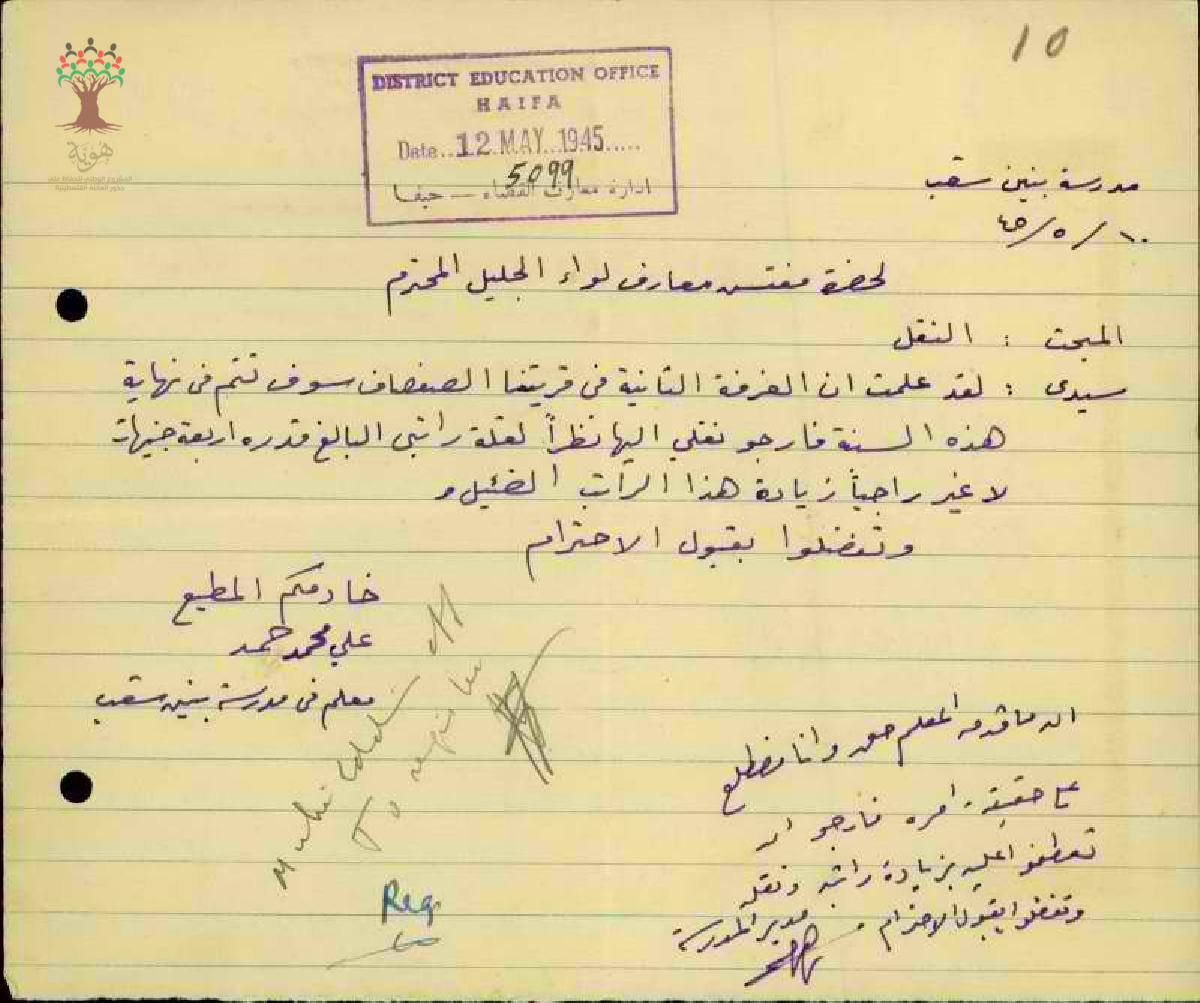 10
هوية
المشروع الوطني للحفاظ على
جذور العائلة الفلسطينية
DISTRICT EDUCATION OFFICE
HAIFA
Date..12 MAY 1945.....
5099
ادارة معارف القضاء — حيفا
مدرسة بنين سعب
١٠/٥/٤٥
لحضرة مفتش معارف لواء الجليل المحترم
المبحث : النقل
سيدي : لقد علمت ان الغرفة الثانية في قريتنا الصفصاف سوف تتم في نهاية
هذه السنة فارجو نقلي اليها نظراً لقلة راتبي البالغ قدره اربعة جنيهات
لا غير راجياً زيادة هذا الراتب الضئيل و
وتفضلوا بقبول الاحترام
خادمكم المطيع
علي محمد حمد
معلم في مدرسة بنين سعب
ان ما قدمه المعلم حق وانا مضطلع
على حقيقة امره فارجو ان
تعطفوا عليه بزيادة راتبه ونقله
وتفضلوا بقبول الاحترام . مدير المدرسة
To
Reg